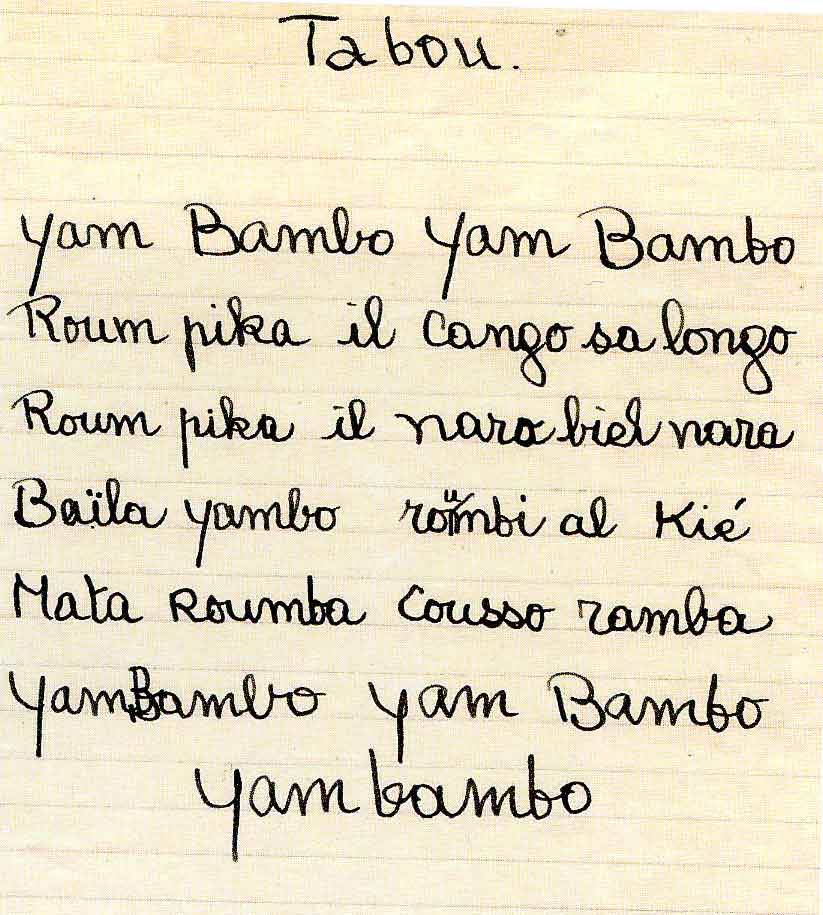 Tabou.
Yam Bambo Yam Bambo
Roum pika il Cango sa longo
Roum pika il nara biel nara
Baïla yambo roümbi al Kié
Mata Roumba Cousso ramba
Yam Bambo yam Bambo
Yam bambo